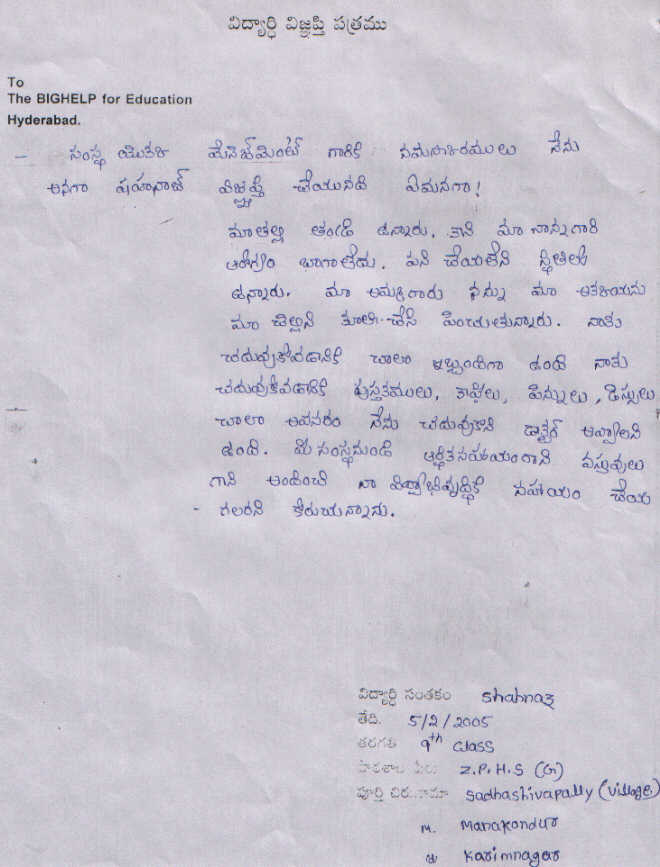 విద్యార్థి విజ్ఞప్తి పత్రము
To
The BIGHELP for Education
Hyderabad.
సంస్థ మేనేజ్‌మెంట్ గారికి నమస్కారములు నేను
అనగా షహనాజ్ విజ్ఞప్తి చేయునది ఏమనగా!
మా తల్లి తండ్రి ఉన్నారు. కాని మా నాన్నగారి
ఆరోగ్యం బాగాలేదు. పని చేయలేని స్థితిలో
ఉన్నారు. మా అమ్మగారు నన్ను మా
మా చెల్లిని కూలి చేసి పెంచుతున్నారు. నాకు
చదువుకోవడానికి చాలా ఇబ్బందిగా ఉంది నాకు
చదువుకోవడానికి పుస్తకములు, కాపీలు, పెన్నులు,
చాలా అవసరం నేను చదువుకొని డాక్టర్ అవ్వాలని
ఉంది. మీ సంస్థనుండి ఆర్థికసహాయంగాని వస్తువులు
గాని అందించి నా విద్యాభివృద్ధికి సహాయం చేయ
గలరని కోరుచున్నాను.
విద్యార్థి సంతకం Shahnaz
తేది. 5/2/2005
తరగతి 9th class
పాఠశాల పేరు Z.P.H.S (G)
పూర్తి చిరునామా Sadhashivapally (village)
M. Manakondur
Karimnagar